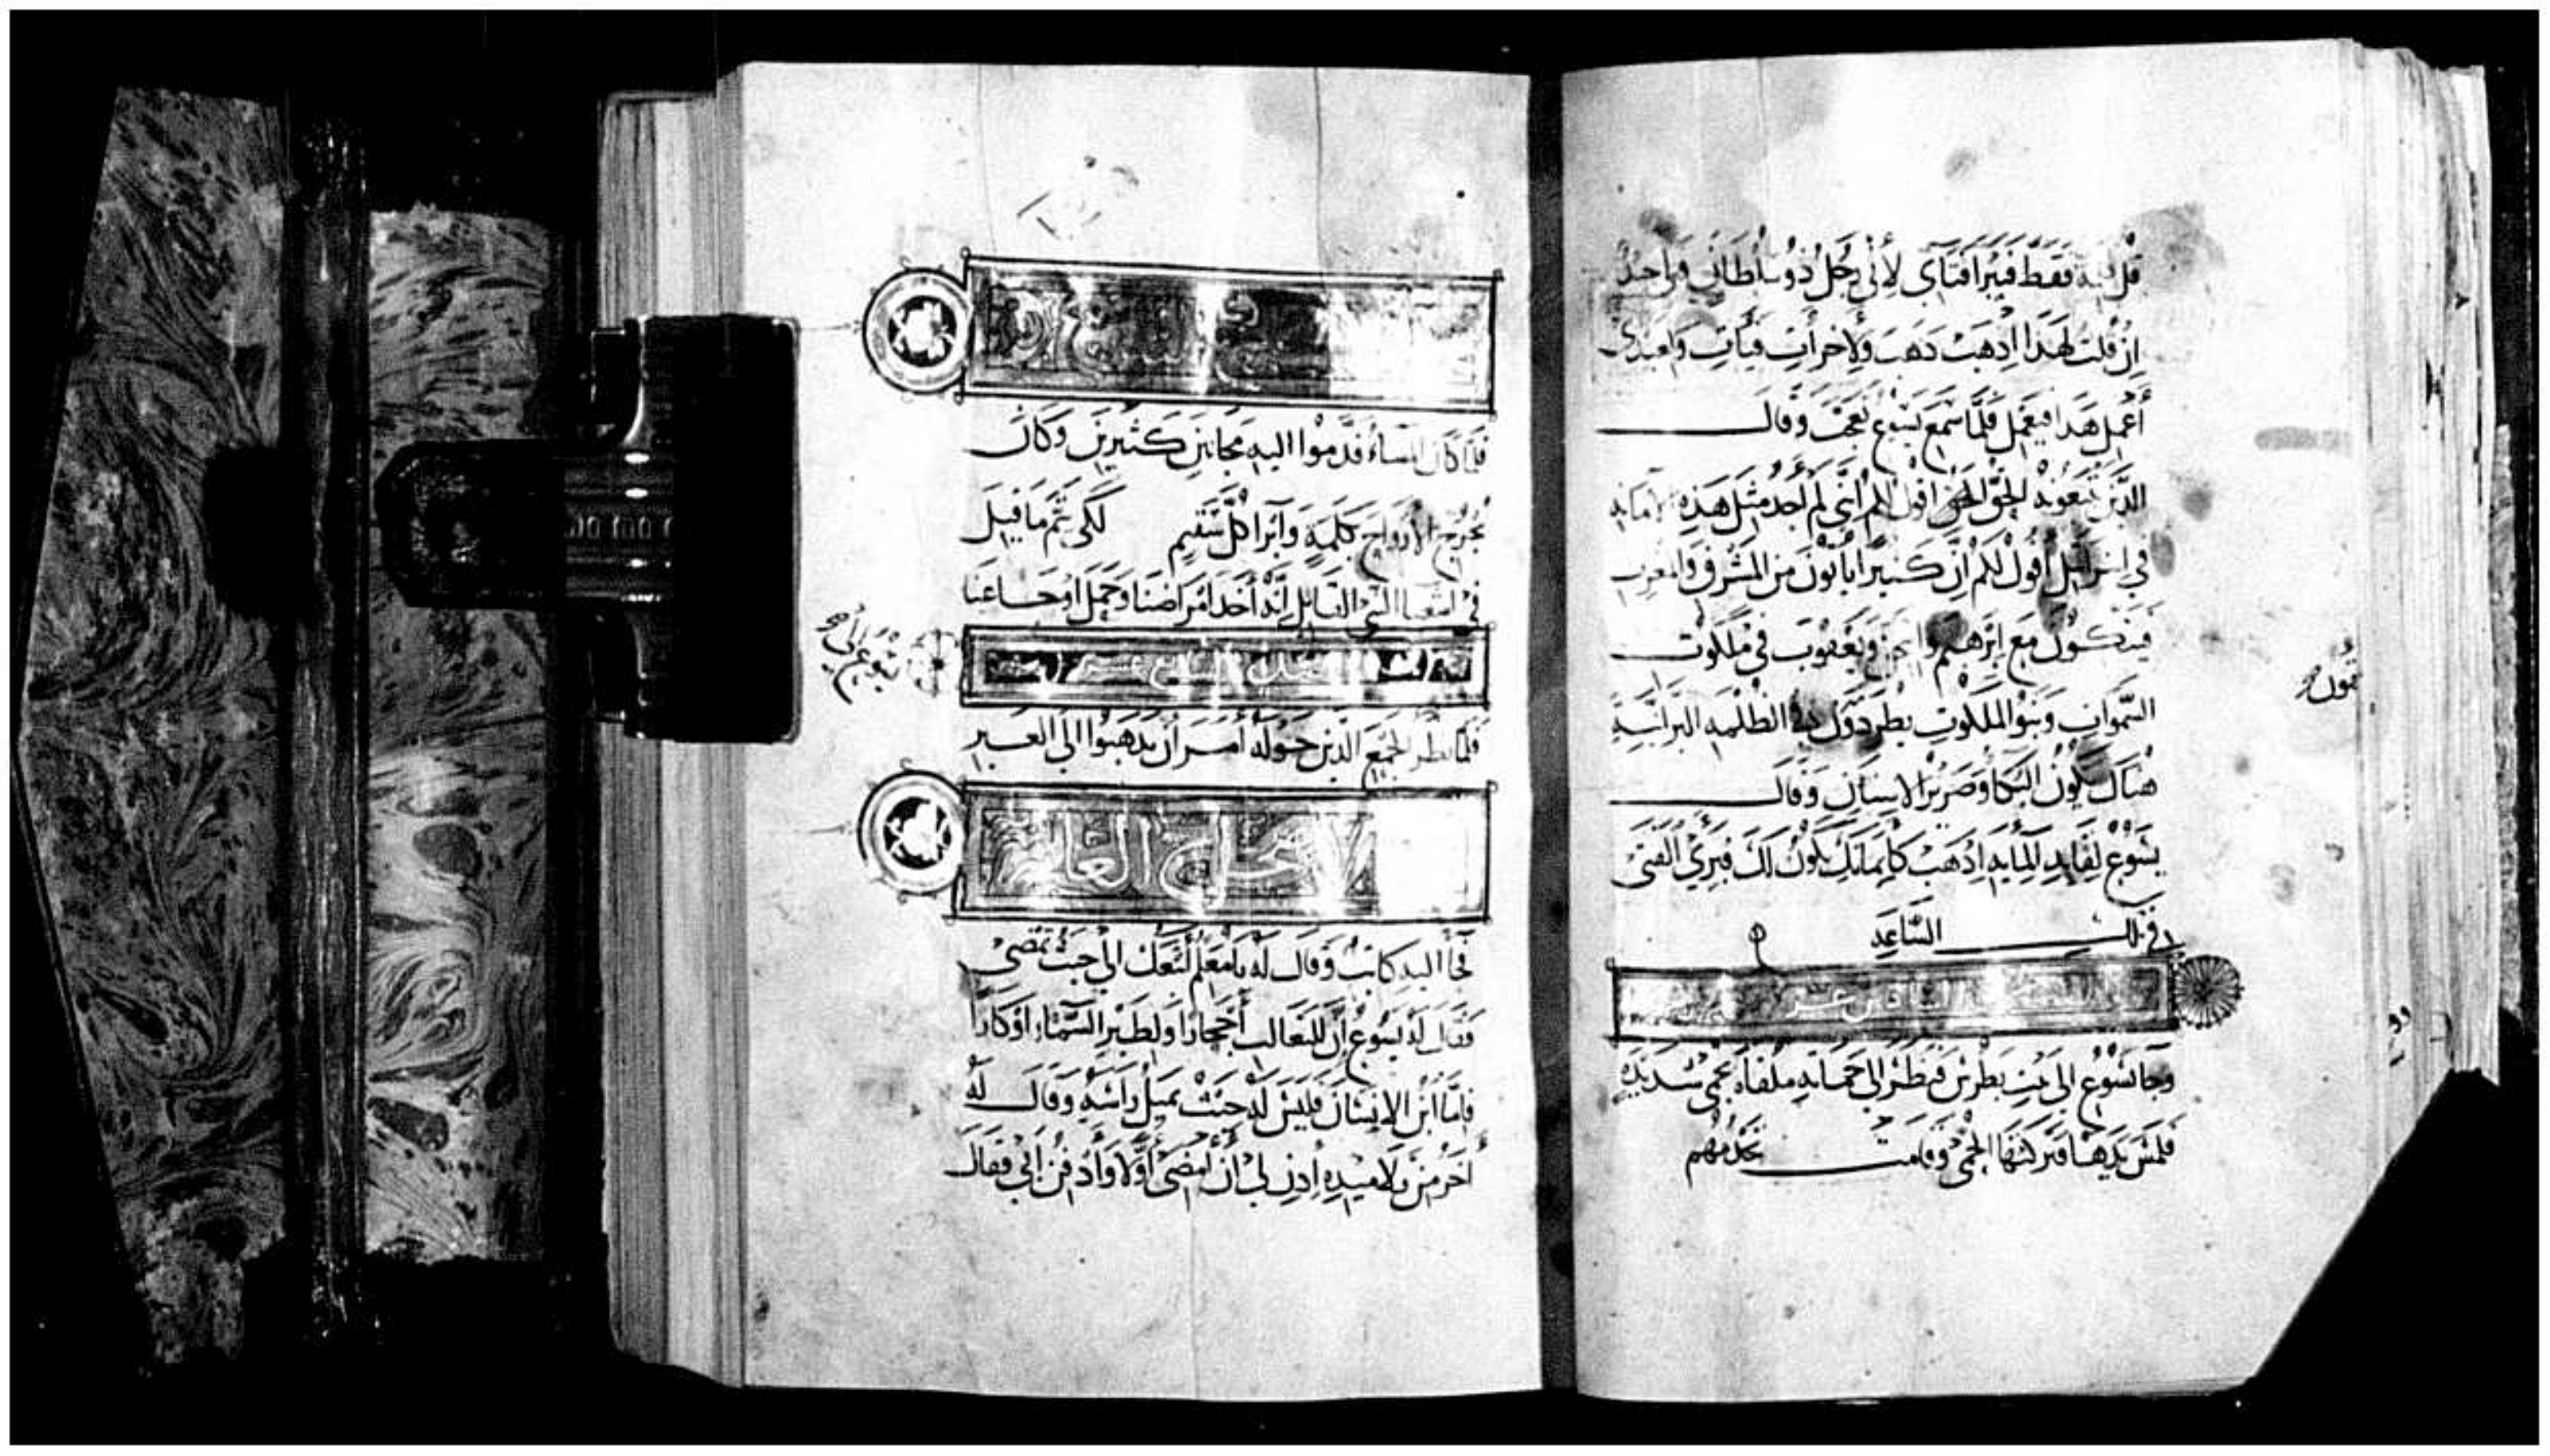 قل كلمة فقط فيبرا فتاي لاني رجل ذو سلطان
ان قلت لهذا اذهب ذهب ولاخر ات فيات ولعبدي
أعمل هذا فيعمل فلما سمع يسوع تعجب وقال
للذين يتبعونه الحق الحق اقول لكم اني لم اجد مثل هذه الامانه
في اسرائيل أقول لكم ان كثيرا يأتون من المشرق والمغرب
فيتكون مع ابرهيم واسحق ويعقوب في ملكوت
السموات وبنو الملكوت يطردون الي الظلمه البرانية
هناك يكون البكاء وصرير الاسنان وقال
يسوع لقايد المايه اذهب كايمانك يكون لك فبرئ الفتى
في تلك الساعه
وجا يسوع الى بيت بطرس فنظر الى حماته ملقاه بحمى شديده
فلمس يدها فتركتها الحمى وقامت تخدمهم
فلما كان المساء قدموا اليه مجانين كثيرين وكان
يخرج الارواح بكلمة وأبرا كل سقيم لكي يتم ما قيل
في اشعيا النبي القايل انه أخذ امراضنا وحمل أوجاعنا
فلما نظر الجميع الذين حوله أمر ان يذهبوا الى العبر
الاصحاح العاشر
فجأ اليه كاتب وقال له يا معلم أتبعك الى حيث تمضي
فقال له يسوع ان للثعالب أجحارا ولطير السماء اوكارا
فاما ابن الانسان فليس له حيث يميل راسه وقال له
أخر من تلاميذه إذن لي ان امضي أولا وأدفن أبي فقال